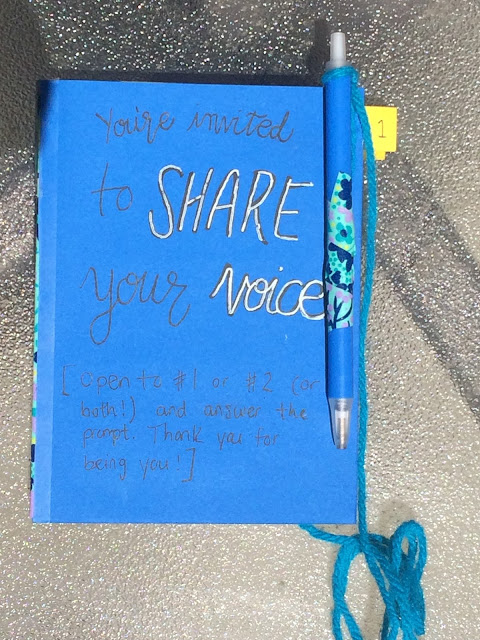 You're invited
to SHARE
your voice
[open to #1 or #2 (or
both!) and answer the
prompt. Thank you for
being you!]
1